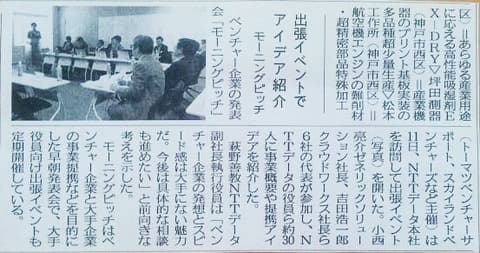 区）＝あらゆる産業用途
に応える高性能吸湿剤E
X-DRY▽坪田測器
（神戸市西区）＝産業機
器のプリント基板実装の
多品種超少量生産▽松本
工作所（神戸市西区）＝
航空機エンジンの難削材
・超精密部品特殊加工
出張イベントで
アイデア紹介
モーニングピッチ
ベンチャー企業の発表
会「モーニングピッチ」
（トーマツベンチャーサ
ポート、スカイランドベ
ンチャーズなど主催）は
11日、NTTデータ本社
を訪問して出張イベント
（写真）を開いた。小西
亮介ゼネリックソリュー
ション社長、吉田浩一郎
クラウドワークス社長ら
6社の代表が参加し、N
TTデータの役員ら約30
人に事業概要や提携アイ
デアを紹介した。
萩野善教NTTデータ
副社長執行役員は「ベン
チャー企業の発想とスピ
ード感は大手にない魅力
だ。今後は具体的な相談
も進めたい」と前向きな
考えを示した。
モーニングピッチはベ
ンチャー企業と大手企業
の事業提携などを目的に
した早朝発表会で、大手
役員向け出張イベントも
定期開催している。